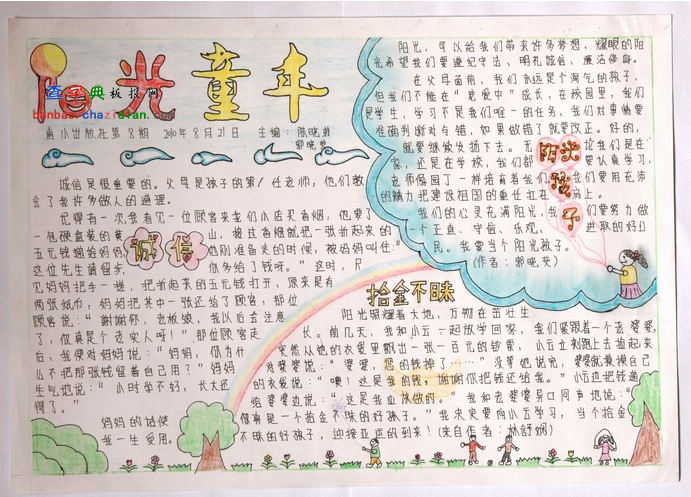 阳光童年
查字典 板报网
banbao.chazidian.com
南小出版社第8期 2010年8月21日 主编:陈晓
郭晓英
阳光,可以给我们带来许多梦想,耀眼的阳
光希望我们要遵纪守法、明礼诚信、廉洁修身。
在父母面前,我们永远是个淘气的孩子,
但我们不能在“宠爱中”成长,在校园里,我们
是学生,学习不是我们唯一的任务,我们对事情要
准确判断对与错,如果做错了就要改正。好的,
就要继续发扬下去。无论我们是在
家,还是在学校,我们都要认真学习,
老师像园丁一样培育着我们,我们要用充沛
的精力把建设祖国的重任扛在肩上。
我们的心灵充满阳光,我们要努力做
一个正直、守信、乐观、进取的好公
民。我要当个阳光孩子。
(作者:郭晓英)
阳光孩子
诚信是很重要的。父母是孩子的第1任老师,他们教
会了我许多做人的道理。
记得有一次,我看见一位顾客来我们小店买香烟,他要了
一包硬盒装的黄山,接住香烟就把一张折起来的
五元钱递给妈妈,他刚准备走的时候,被妈妈叫住:“
这位先生请留步,你多给了钱呀。”这时,只
见妈妈把手一摊,把折起来的五元钱打开,原来是有
两张纸巾,妈妈把其中一张还给了顾客,那位
顾客说:“谢谢你,老板娘,我以后会注意
了,你真是个老实人呀!”那位顾客走
后,我便对妈妈说:“妈妈,你为什
么不把那张钱留着自己用?”妈妈
生气地说:“小时学不好,长大还
得了。”
妈妈的话使
我一生受用。
诚信
拾金不昧
阳光照耀着大地,万物在茁壮生
长。前几天,我和小云一起放学回家,我们紧跟着一个婆婆,
突然从她的衣袋里飘出一张一百元的钞票,小云立刻跑上去捡起来
对婆婆说:“婆婆,您的钱掉了……”没等她说完,婆婆就摸摸自己
的衣袋说:“噢!这是我的钱,谢谢你把钱还给我。”小云边把钱递
给婆婆边说:“这是我应该做的。”我和老婆婆异口同声地说:“
你真是一个拾金不昧的好孩子。”我决定要向小云学习,当个拾金
不昧的好孩子,迎接亚运的到来!(来自作者:林舒娴)